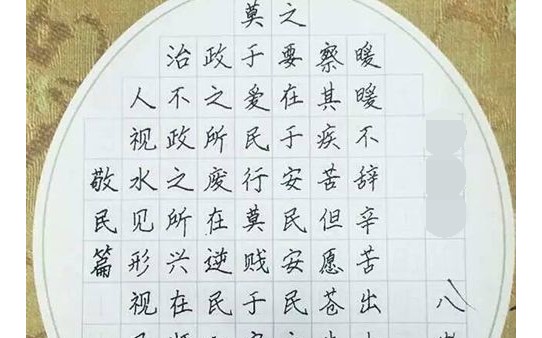 敬民篇
人视水见形视
治不政之所兴在
政之所废在逆民
莫于爱民行莫贱于
之要在于安民安民
察其疾苦但愿苍
暖暖不辞辛苦出
八